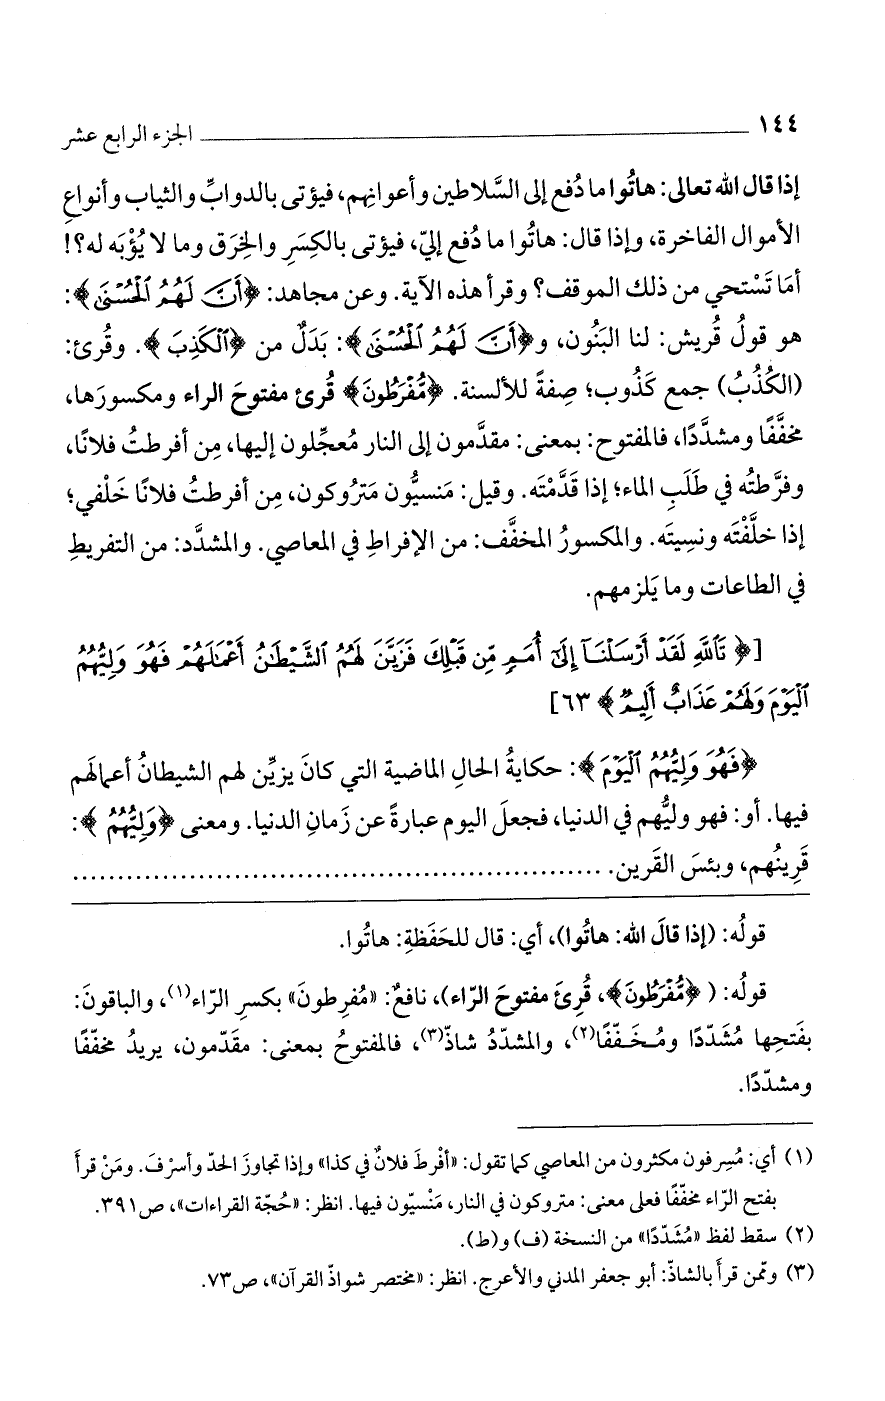 ١٤٤ ــــــــــــــــــــ الجزء الرابع عشر
إذا قال الله تعالى: هاتُوا ما دُفع إلى السَّلاطين وأعوانِهم، فيؤتى بالدوابِّ والثياب وأنواعِ
الأموال الفاخرة، وإذا قال: هاتُوا ما دُفع إليّ، فيؤتى بالكِسَرِ والخِرَق وما لا يُؤْبَه له؟!
أمَا تَسْتحي من ذلك الموقف؟ وقرأ هذه الآية. وعن مجاهد: ﴿أَنَّ لَهُمُ ٱلْحُسْنَىٰ﴾:
هو قولُ قُريش: لنا البَنُون، و﴿أَنَّ لَهُمُ ٱلْحُسْنَىٰ﴾: بَدَلٌ من ﴿ٱلْكَذِبَ﴾. وقُرئ:
(الكُذُبُ) جمع كَذُوب؛ صِفةً للألسنة. ﴿مُّفْرَطُونَ﴾ قُرئ مفتوحَ الراء ومكسورَها،
مخفَّفًا ومشدَّدًا، فالمفتوح: بمعنى: مقدَّمون إلى النار مُعجَّلون إليها، مِن أفرطتُ فلانًا،
وفرَّطتُه في طَلَبِ الماء؛ إذا قَدَّمْتَه. وقيل: مَنسيُّون مَترُوكون، مِن أفرطتُ فلانًا خَلْفي؛
إذا خلَّفْتَه ونسِيتَه. والمكسورُ المخفَّف: من الإفراطِ في المعاصي. والمشدَّد: من التفريطِ
في الطاعات وما يَلزمهم.
[﴿تَٱللَّهِ لَقَدْ أَرْسَلْنَآ إِلَىٰٓ أُمَمٍ مِّن قَبْلِكَ فَزَيَّنَ لَهُمُ ٱلشَّيْطَٰنُ أَعْمَٰلَهُمْ فَهُوَ وَلِيُّهُمُ
ٱلْيَوْمَ وَلَهُمْ عَذَابٌ أَلِيمٌ﴾ ٦٣]
﴿فَهُوَ وَلِيُّهُمُ ٱلْيَوْمَ﴾: حكايةُ الحالِ الماضية التي كانَ يزيِّن لهم الشيطانُ أعمالَهم
فيها. أو: فهو وليُّهم في الدنيا، فجعلَ اليوم عبارةً عن زَمانِ الدنيا. ومعنى ﴿وَلِيُّهُمُ﴾:
قَرِينُهم، وبئسَ القَرين. ........................................................
قولُه: (إذا قالَ الله: هاتُوا)، أي: قال للحَفَظةِ: هاتُوا.
قولُه: (﴿مُّفْرَطُونَ﴾، قُرِئَ مفتوحَ الرّاء)، نافعٌ: «مُفرِطونَ» بكسرِ الرّاء(١)، والباقونَ:
بفَتحِها مُشَدّدًا ومُخَفّفًا(٢)، والمشدّدُ شاذّ(٣)، فالمفتوحُ بمعنى: مقَدّمون، يريدُ مخفّفًا
ومشدّدًا.
(١) أي: مُسرفون مكثرون من المعاصي كما تقول: «أفْرطَ فلانٌ في كذا» وإذا تجاوزَ الحدّ وأسرْفَ. ومَنْ قرأ
بفتح الرّاء مخفّفًا فعلى معنى: متروكون في النار، مَنْسيّون فيها. انظر: «حُجّة القراءات»، ص٣٩١.
(٢) سقط لفظ «مُشَدّدًا» من النسخة (ف) و(ط).
(٣) وممّن قرأ بالشاذّ: أبو جعفر المدني والأعرج. انظر: «مختصر شواذّ القرآن»، ص٧٣.